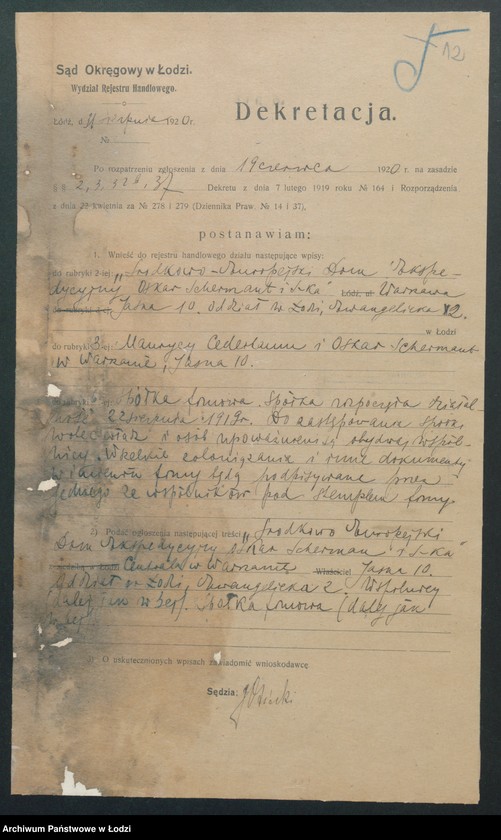 12
Sąd Okręgowy w Łodzi.
Wydział Rejestru Handlowego.
Łódź, d. 11 sierpnia 1920 r.
№
Dekretacja.
Po rozpatrzeniu zgłoszenia z dnia 19 czerwca 1920 r. na zasadzie
§ § 2, 3, 37 Dekretu z dnia 7 lutego 1919 roku № 164 i Rozporządzenia
z dnia 22 kwietnia za № 278 i 279 (Dziennika Praw. № 14 i 37),
postanawiam:
1. Wnieść do rejestru handlowego działu następujące wpisy:
do rubryki 2-iej „Środkowo-Europejski Dom Ekspe-
dycyjny Oskar Schermant i S-ka" Łódź, ul. Warszawa
Jasna 10. Oddział w Łodzi, Ewangelicka 2.
w Łodzi
do rubryki 3-iej Maurycy Cederbaum i Oskar Schermant
w Warszawie, Jasna 10.
Spółka firmowa. Spółka rozpoczęła dział-
22 sierpnia 1919 r. Do zastępowania spółki
wobec władz i osób upoważnieni są obydwaj wspól-
nicy. Wszelkie zobowiązania i inne dokumenty
w imieniu firmy będą podpisywane przez
jednego ze wspólników pod stemplem firmy.
2) Podać ogłoszenia następującej treści „Środkowo Europejski
Dom Ekspedycyjny Oskar Scherman i S-ka"
Centrala w Warszawie Właściciel Jasna 10.
Oddział w Łodzi, Ewangelicka 2. Wspólnicy
dalej jak w Spółka firmowa (dalej jak
3) O uskutecznionych wpisach zawiadomić wnioskodawcę
Sędzia:
Archiwum Państwowe w Łodzi